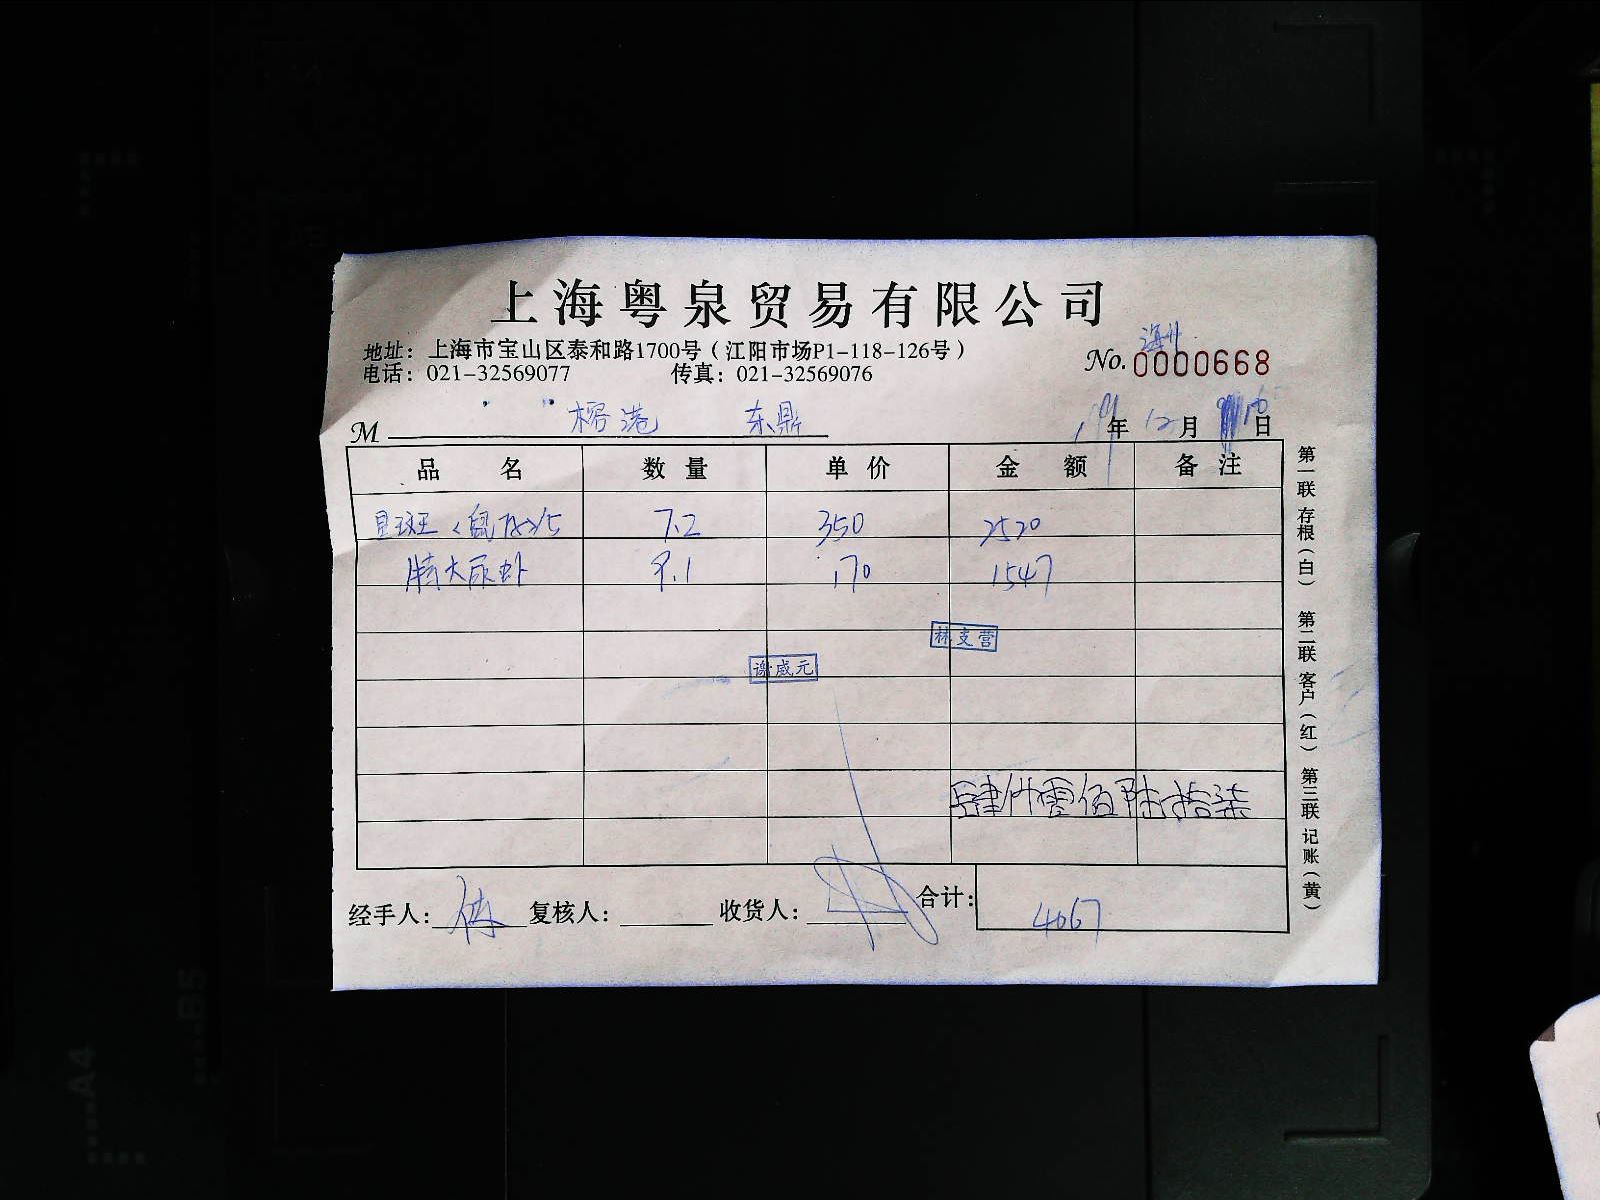 上海粤泉贸易有限公司
地址：上海市宝山区泰和路1700号（江阳市场P1-118-126号）
海州
No. 0000668
电话：021-32569077 传真：021-32569076
M 榕港 东鼎 19年12月16日
品名 数量 单价 金额 备注
星斑 7.2 350 2520
特大尿虾 9.1 170 1547
林支营
谢咸元
肆仟零佰陆拾柒
经手人： 复核人： 收货人： 合计： 4067
第一联 存根（白） 第二联 客户（红） 第三联 记账（黄）